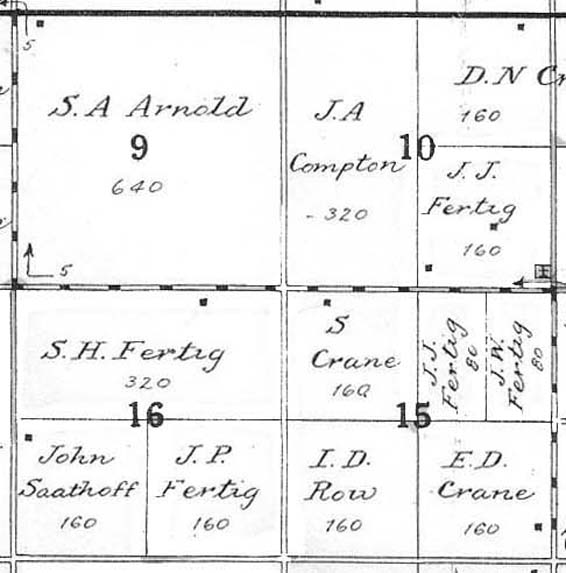 5
S. A Arnold
9
640
J. A
Compton
- 320
10
D. N Cr
160
J. J.
Fertig
160
5
S. H. Fertig
320
16
John
Saathoff
160
J. P.
Fertig
160
S
Crane
160
J. J.
Fertig
80
J. W.
Fertig
80
15
I. D.
Row
160
E. D.
Crane
160